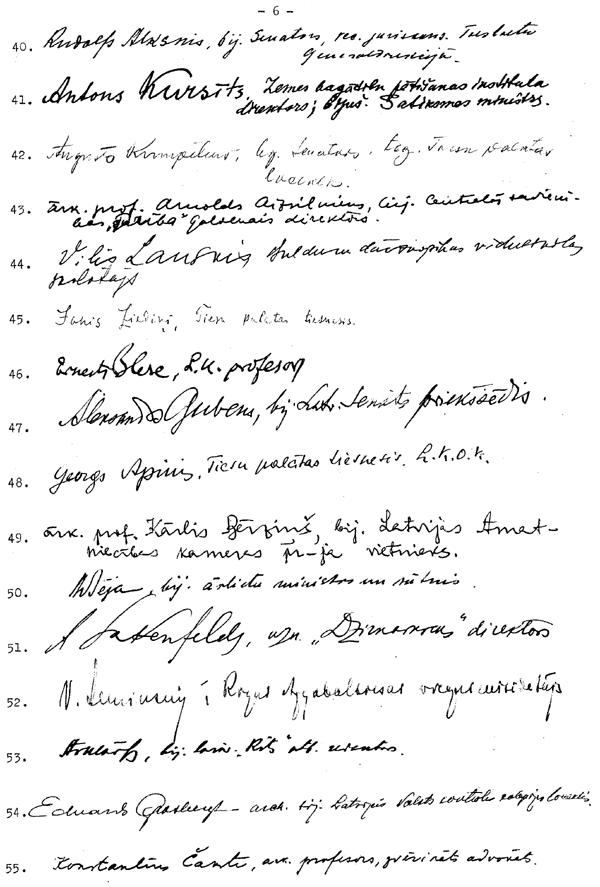 - 6 -
40. Rudolfs Alksnis, bij. Senators, Tieslietu
Generaldirekcijā.
41. Antons Kursītis, Zemes bagātību pētīšanas institūta
direktors; bijuš. Satiksmes ministrs.
42. Augusts bij. Senators, tag. Tiesu palātas
loceklis.
43. ārk. prof. Arnolds Aizsilnieks, bij. Centrālās savieni-
bas „Turība" galvenais direktors.
44. Vilis Lauskis Bulduru dārzkopības vidusskolas
skolotājs
45. Jānis Tiesu palātas tiesnesis.
46. Ernests Blese, L.U. profesors
47. Aleksandrs Gubens, bij. Latv. Senāts priekšsēdis.
48. Georgs Apinis, Tiesu palātas tiesnesis. L.K.O.K.
49. ārk. prof. Kārlis Bērziņš, bij. Latvijas Amat-
niecības kameras pr-ja vietnieks.
50. bij. ārlietu ministrs un sūtnis.
51. uzņ. „Dzirnavnieks" direktors
52. Rīgas Apgabaltiesas
53. bij. laikr. „Rīts" atb. redaktors.
54. Eduards Grosbergs - arch. bij. Latvijas Valsts kontroles kolēģijas loceklis.
55. Konstantīns Čakste, ārk. profesors, zvērināts advokāts.